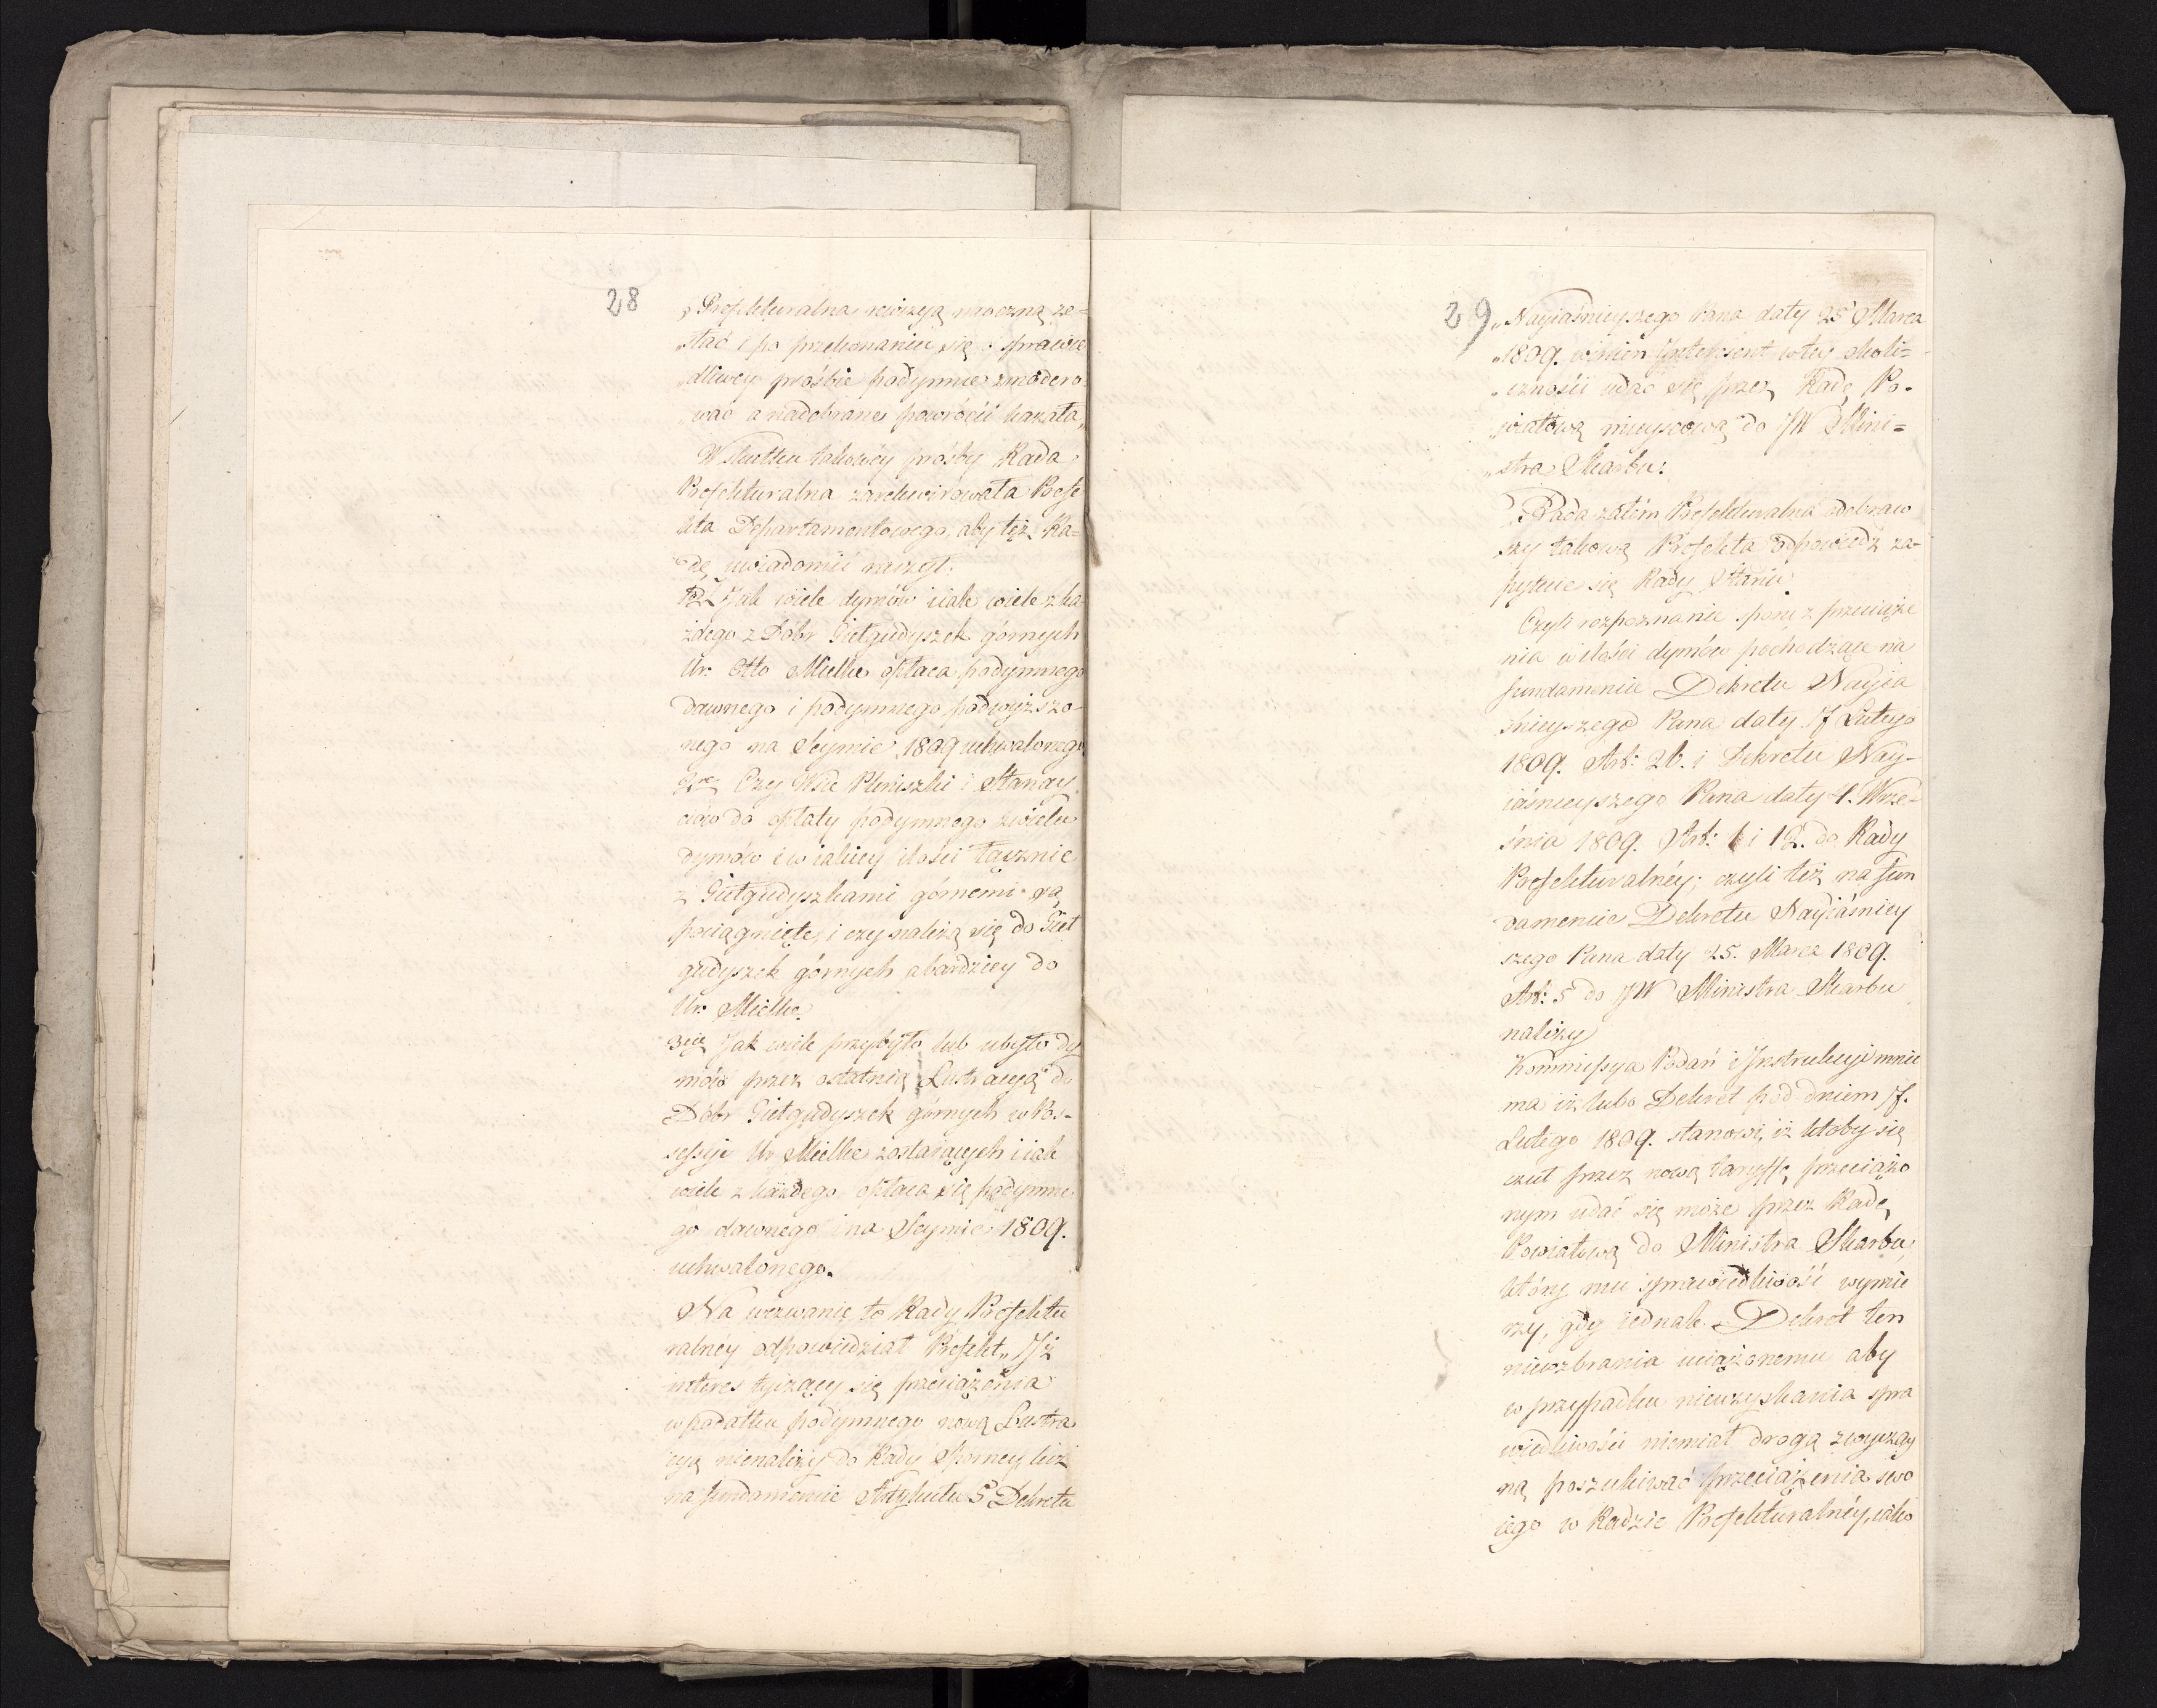 28
„Prefekturalna rewizyą naoczną ze=
„słać i po przekonaniu się o sprawie
„dliwey prośbie podymne zmodero=
„wać a nadebrane powrócić kazała„
W skutku takowéy prośby Rada
Prefekturalna zarekwirowała Prefe
kta Departamentowego, aby też Ra=
dę uwiadomić raczył.
1ód Jak wiele dymów i iak wiele z ka=
żdego z Dóbr Giełgudyszek górnych
Ur: Otto Mielke opłaca podymnego
dawnego i podymnego podwyższo=
nego na Seymie 1809 uchwalonego
2re Czy Wsie Pluiszki i Stanay
cie do opłaty podymnego z wielu
dymów i w iakiey ilości łącznie
z Giełgudyszkami górnemi są
pociągnięte, i czy należą się do Gieł
gudyszek górnych a bardziey do
Ur: Mielke.
3cie Jak wiele przybyło lub ubyło dy
mów przez ostatnią Lustracyą do
Dóbr Giełgudyszek górnych w Pos=
sessyi Ur Mielke zostaiących i iak
wiele z każdego opłaca się podymne
go dawnego i na Seymie 1809.
uchwalonego.
Na wezwanie to Rady Prefektu
ralnéy odpowiedział Prefekt„ Jż
interes tyczący się przeciążenia
w podatku podymnego nową Lustra
cyą nienależy do Rady Sporney lecz
na fundamencie Artykułu 5 Dekretu
29
„Nayiaśnieyszego Pana daty 25 Marca
„1809. winien Jnteressent w tey okoli=
„czności udać się przez Radę Po=
„wiatową mieyscową do JW Mini=
„stra Skarbu:
Rada zatém Prefekturalna odebraw
szy takową Prefekta odpowiedź za=
pytuie się Rady Stanu.
Czyli rozpoznanie sporu z przeciąże
nia w ilości dymów pochodzące na
fundamencie Dekretu Nayia
śnieyszego Pana daty 7 Lutego
1809. Art: 26. i Dekretu Nay=
iaśnieyszego Pana daty 4. Wrze=
śnia 1809. Art: 6 i 12. do Rady
Prefekturalnéy; czyli też na fun
damencie Dekretu Nayiaśniey
szego Pana daty 25. Marca 1809.
Art: 5 do JW Ministra Skarbu
należy
Kommissya Podań i Jnstrukcyi mnie
ma iż lubo Dekret pod dniem 7.
Lutego 1809. stanowi, iż ktoby się
czuł przez nową taryffę przeciążo
nym udać się może przez Radę
Powiatową do Ministra Skarbu
który mu sprawiedliwość wymie
rzy, gdy iednak Dekret ten
niewzbrania uciążonemu aby
w przypadku nieuzyskania spra
wiedliwości niemiał drogą zwyczay
ną poszukiwać przeciążenia swo
iego w Radzie Prefekturalnéy, iako